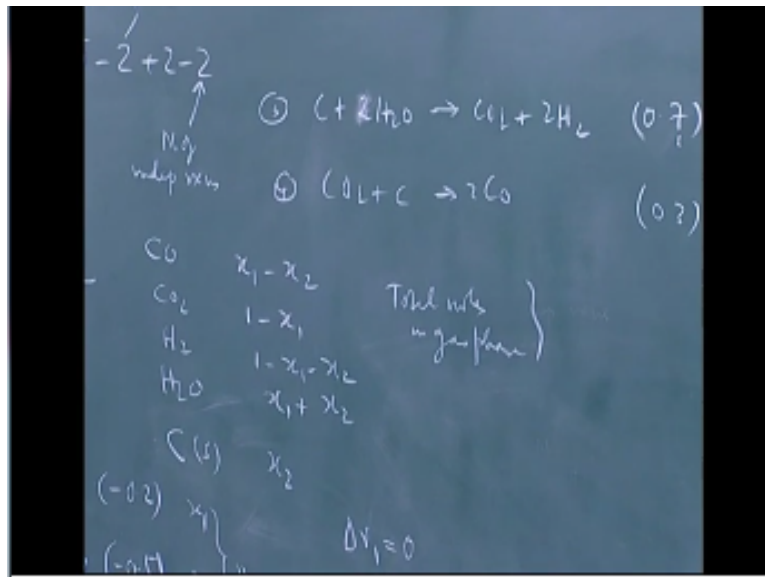 - 2 + 2 - 2
No. of
indep rxns
③ C + 2H₂O → CO₂ + 2H₂ (0.7)
④ CO₂ + C → 2CO (0.?)
CO x₁ - x₂
CO₂ 1 - x₁
H₂ 1 - x₁ - x₂
H₂O x₁ + x₂
C(s) x₂
Total moles
in gas phase
(-0.2) x₁
ΔV₁ = 0